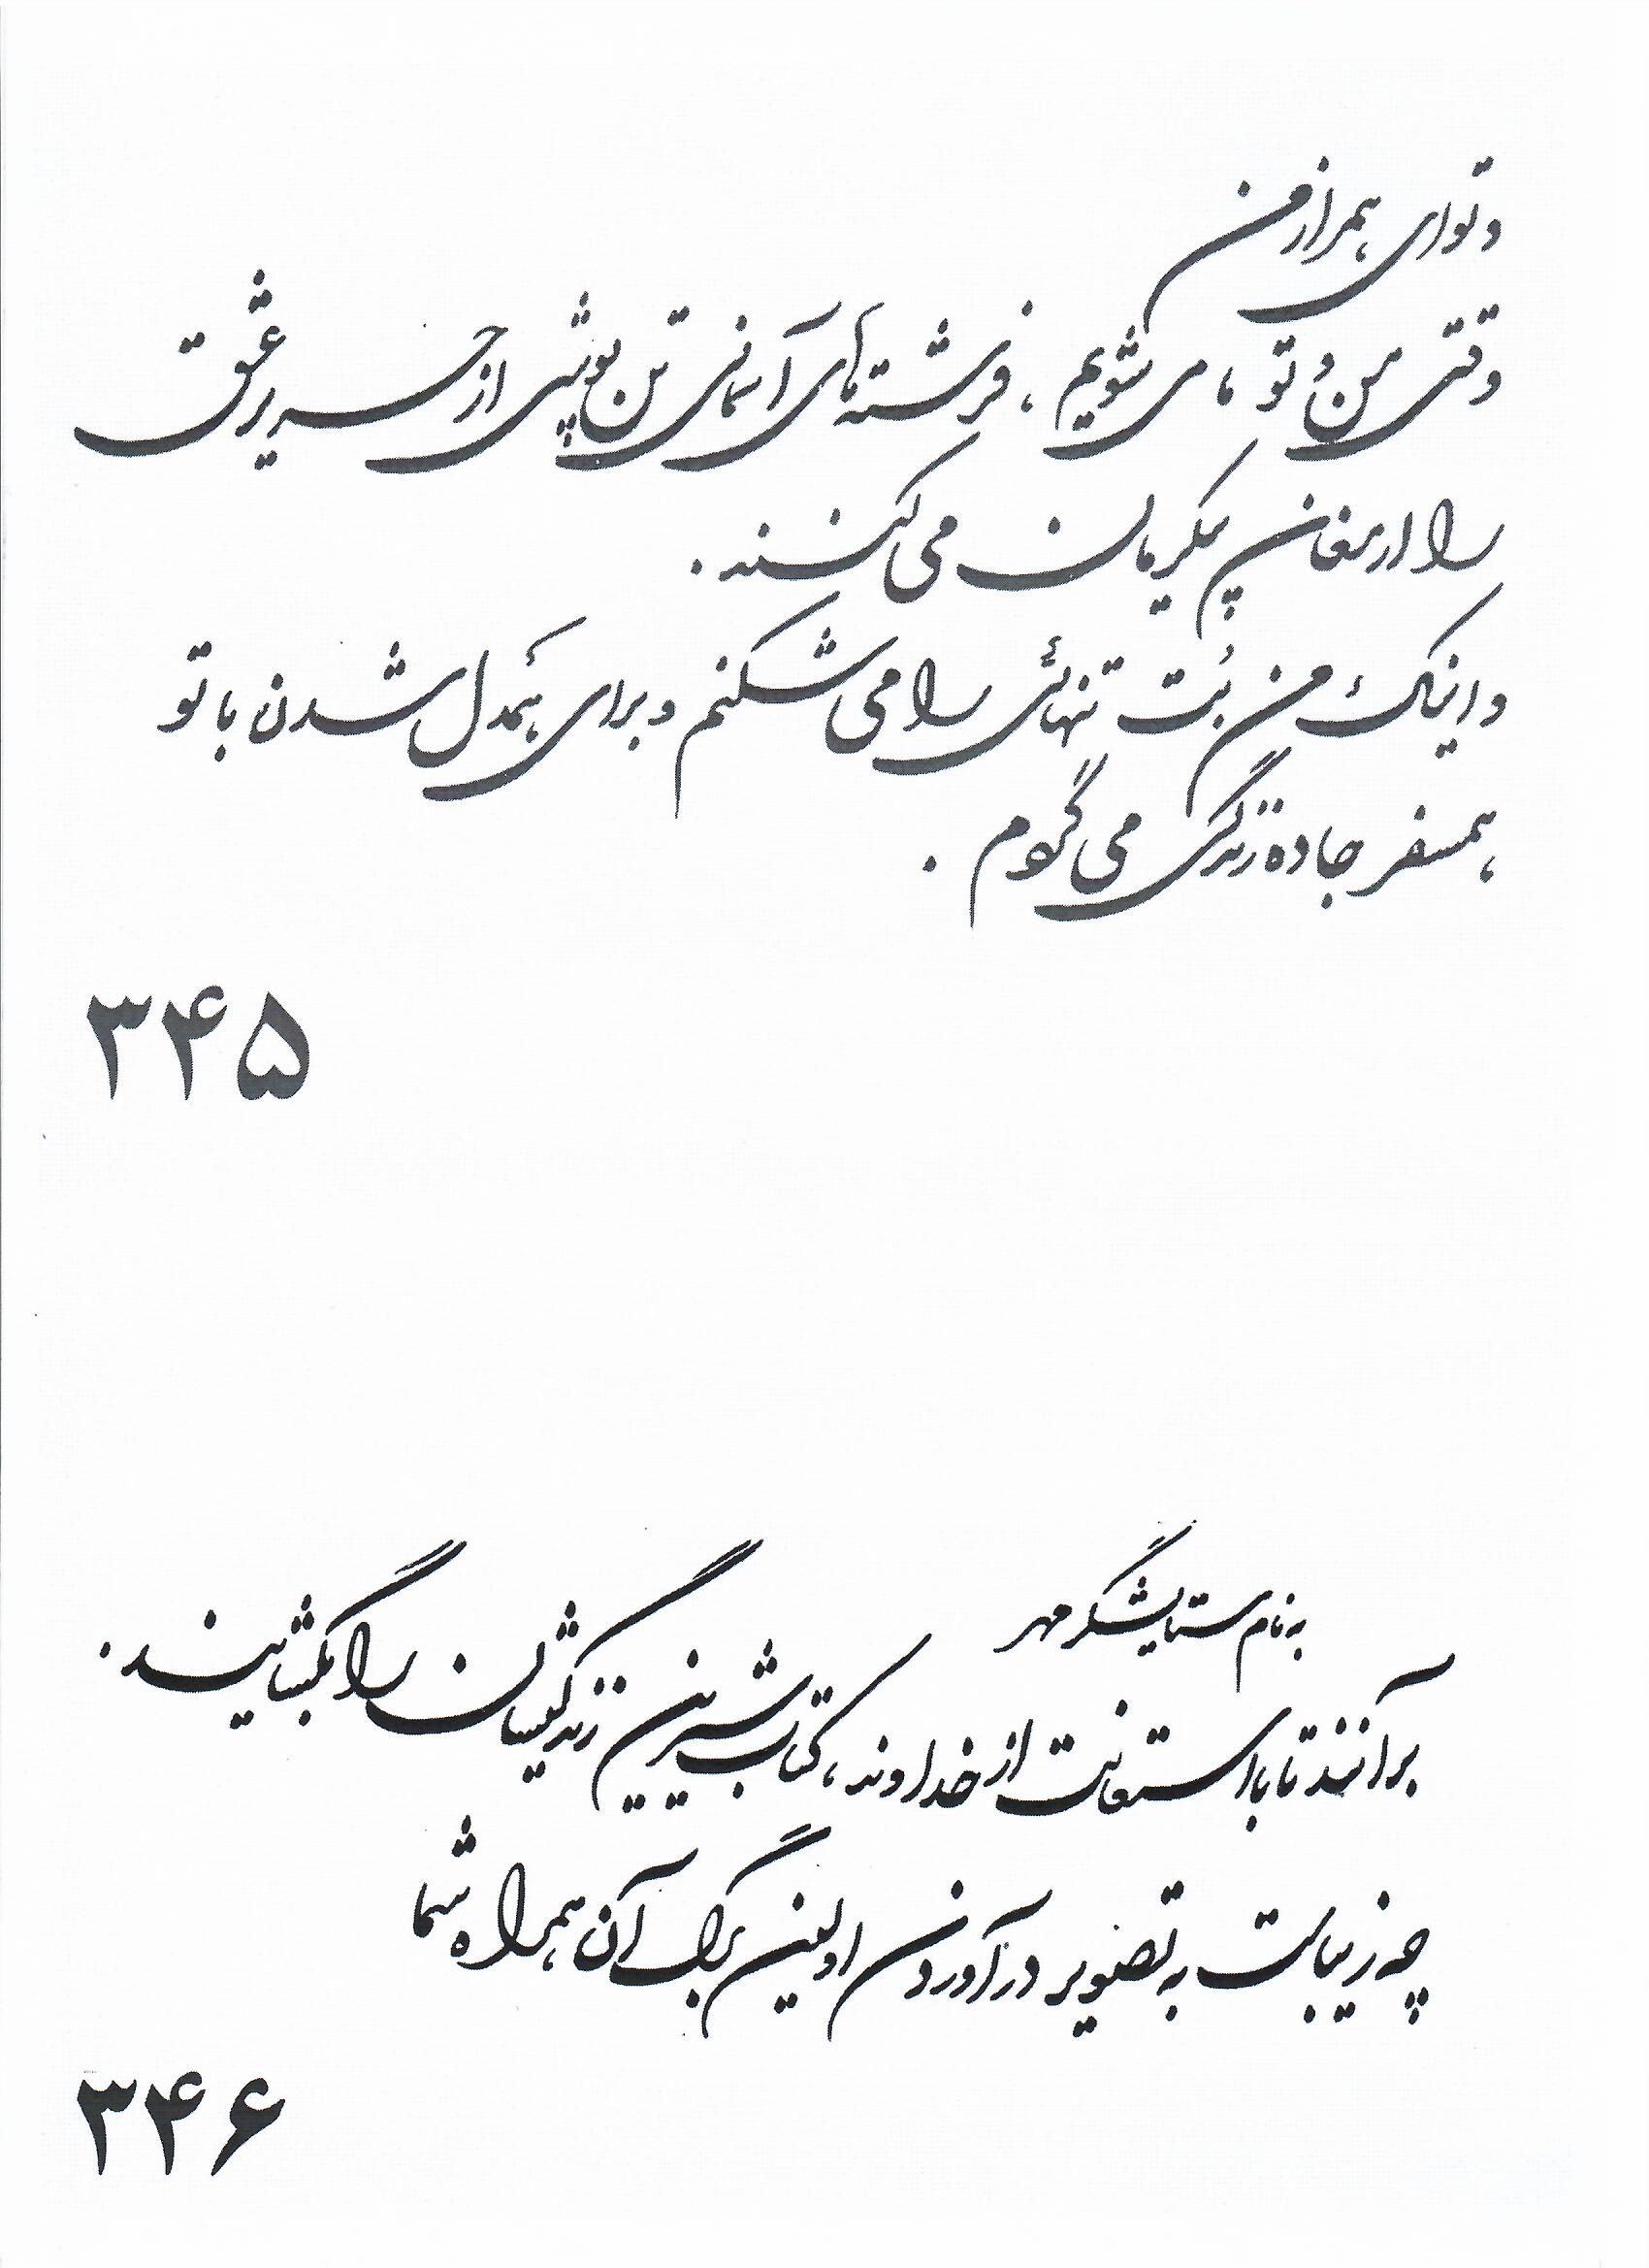 و تو ای همراز من
وقتی من و تو ، ما می شویم ، فرشته های آسمانی تن پوشی از حریر عشق
را ارمغان پیکرمان می کنند .
و اینک من بُت تنهائی را می شکنم و برای همدل شدن با تو
همسفر جاده زندگی می گردم .
۳۴۵
به نام ستایشگر مهر
برآنند تا با استعانت از خداوند ، کتاب شیرین زندگیشان را بگشایند .
چه زیباست به تصویر درآوردن اولین برگ آن همراه شما
۳۴۶